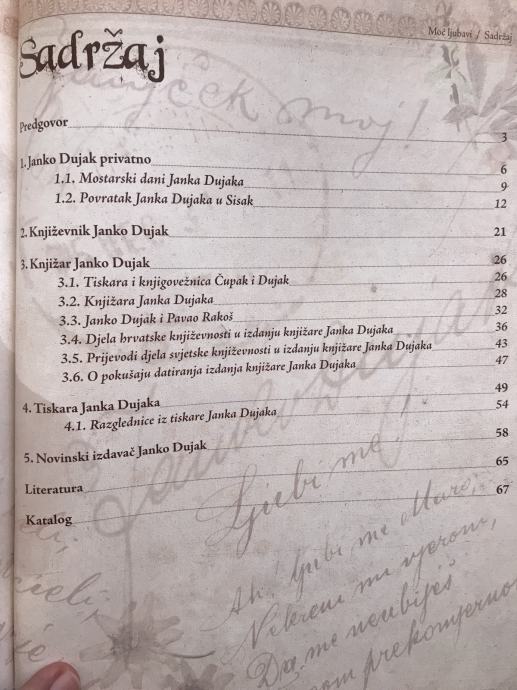 Moć ljubavi / Sadržaj
Sadržaj
Predgovor 3
1. Janko Dujak privatno 6
1.1. Mostarski dani Janka Dujaka 9
1.2. Povratak Janka Dujaka u Sisak 12
2. Književnik Janko Dujak 21
3. Knjižar Janko Dujak 26
3.1. Tiskara i knjigovežnica Čupak i Dujak 26
3.2. Knjižara Janka Dujaka 28
3.3. Janko Dujak i Pavao Rakoš 32
3.4. Djela hrvatske književnosti u izdanju knjižare Janka Dujaka 36
3.5. Prijevodi djela svjetske književnosti u izdanju knjižare Janka Dujaka 43
3.6. O pokušaju datiranja izdanja knjižare Janka Dujaka 47
4. Tiskara Janka Dujaka 49
4.1. Razglednice iz tiskare Janka Dujaka 54
5. Novinski izdavač Janko Dujak 58
Literatura 65
Katalog 67
moj!
Ljubi me!
Ah! ljubi me Maro,
Da me neubiješ
prekomjerno